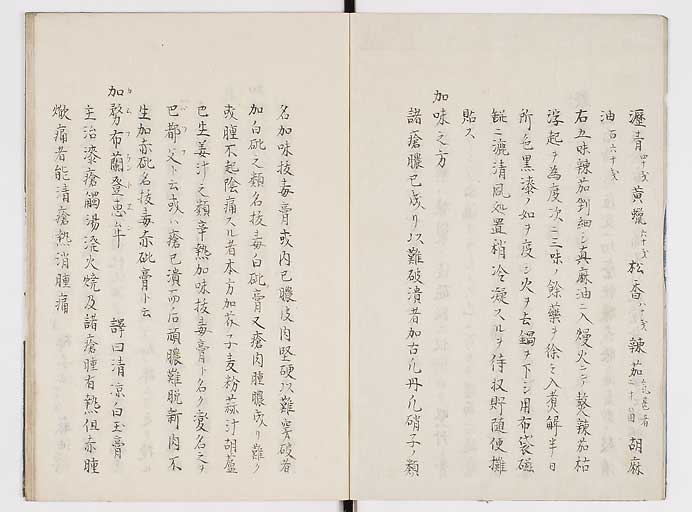 瀝青四十戔 黄蠟六十戔 松香八十戔 辣茄 胡麻
油百六十戔
右五味辣茄剉細シ真麻油ニ入慢火ニテ熬辣茄枯
浮起ヲ為度次ニ三味ノ餘藥ヲ徐々入煮解半日
所色黒漆ノ如ヲ度シ火ヲ去鍋ヲ下シ用布袋磁
鉢ニ漉清風処置稍冷凝スルヲ待収貯随便攤
貼ス
加味之方
諸瘡膿已成リ以難破潰者加古凡丹凡硝子ノ類
名加味抜毒膏或内已膿皮肉堅硬以難穿破者
加白砒之類名抜毒白砒膏又瘡肉腫膿成リ難ク
或腫不起陰痛スル者本方加芥子麦粉蒜汁胡蘆
巴生姜汁之類辛熱加味抜毒膏ト名ク愛名之ヲ
巴都父ト云或ハ瘡已潰而后頑膿難脱新肉不
生加赤砒名抜毒赤砒膏ト云
加務布蘭登恵牟 譯曰清涼白玉膏
主治漆瘡觸湯溌火焼及諸瘡腫有熱但赤腫
焮痛者能清瘡熱消腫痛